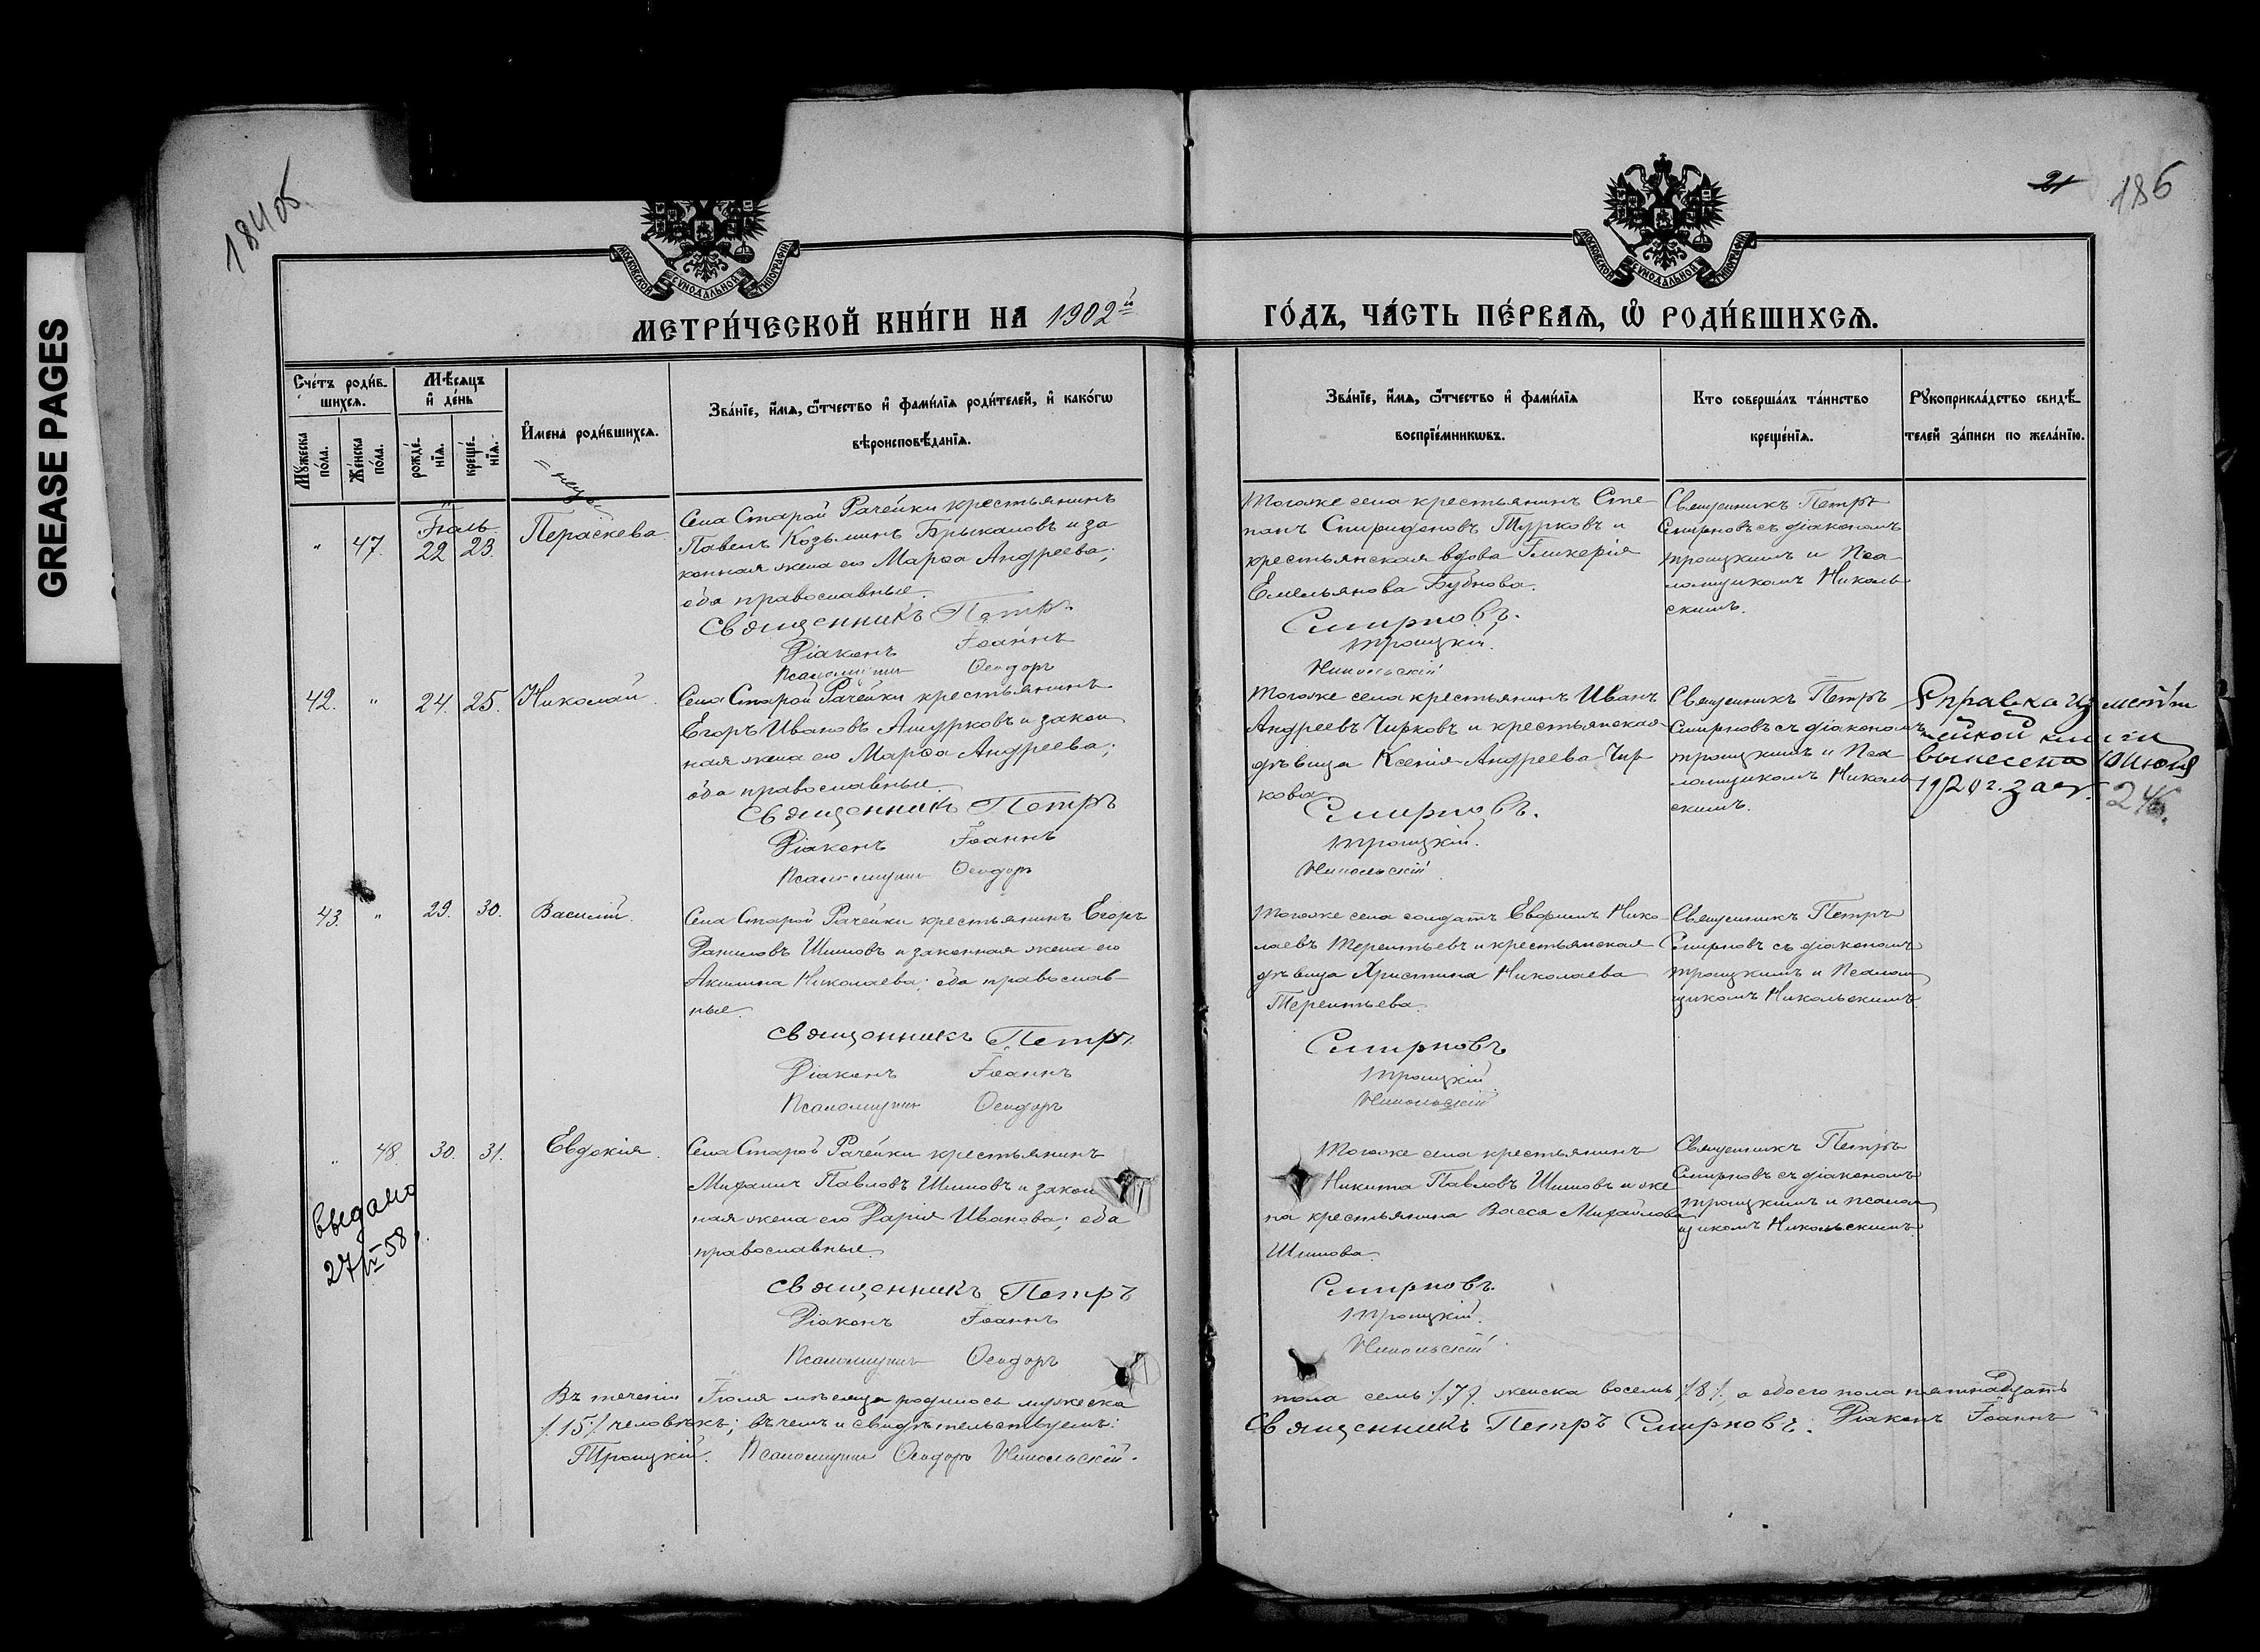 GREASE PAGES
18405
21 186
МОСКОВСКОЙ СѴНОДАЛЬНОЙ ТИПОГРАФІИ
МОСКОВСКОЙ СѴНОДАЛЬНОЙ ТИПОГРАФІИ
МЕТРИ́ЧЕСКОЙ КНИ́ГИ НА 1902й
ГО́ДЪ, ЧА́СТЬ ПЕ́РВАѦ, Ѡ҆ РОДИ́ВШИХСѦ.
Сче́тъ роди́в-
шихсѧ.
Мꙋ́жеска по́ла.
Же́нска по́ла.
Мѣ́сѧцъ
и҆ де́нь
рожде́-
нїѧ.
креще́-
нїѧ.
И҆мена̀ роди́вшихсѧ.
Зва́нїе, и҆́мѧ, ѻ҆́тчество и҆ фамѝлїѧ роди́телей, и҆ како́гѡ
вѣроисповѣ́данїѧ.
Зва́нїе, и҆́мѧ, ѻ҆́тчество и҆ фамѝлїѧ
воспрїе́мникѡвъ.
Кто соверша́лъ та́инство
креще́нїѧ.
Рꙋкоприкла́дство свидѣ́-
телей за́писи по жела́нїю.
" 47. Іюль 22 23. Параскева.
Села Старой Рачейки крестьянинъ
Павелъ Козьминъ Брыкаловъ и за
конная жена его Марѳа Андреева;
оба православные.
Священникъ Петръ
Діаконъ Іоаннъ
Псаломщикъ Ѳеодоръ
Тогоже села крестьянинъ Сте-
панъ Спиридоновъ Турковъ и
крестьянская вдова Гликерія
Емельянова Бубнова.
Смирновъ.
Троицкій.
Никольскій
Священникъ Петръ
Смирновъ съ діакономъ
Троицкимъ и Пса
ломщикомъ Николь
скимъ.
42. " 24. 25. Николай.
Села Старой Рачейки крестьянинъ
Егоръ Ивановъ Ашурковъ и закон
ная жена его Марѳа Андреева;
оба православные.
Священникъ Петръ
Діаконъ Іоаннъ
Псаломщикъ Ѳеодоръ
Тогоже села крестьянинъ Иванъ
Андреевъ Чирковъ и крестьянская
дѣвица Ксенія Андреева Чир
кова
Смирновъ.
Троицкій.
Никольскій
Священникъ Петръ
Смирновъ съ діакономъ
Троицкимъ и Пса
ломщикомъ Николь
скимъ.
Справка из метри
ческой книги
вынесена Июля
1920 г. за №. 246.
43. " 29. 30. Василій.
Села Старой Рачейки крестьянинъ Егоръ
Даниловъ Шишовъ и законная жена его
Акилина Николаева; оба православ-
ные.
Священникъ Петръ
Діаконъ Іоаннъ
Псаломщикъ Ѳеодоръ
Тогоже села солдатъ Евфимъ Нико-
лаевъ Терентьевъ и крестьянская
дѣвица Христина Николаева
Терентьева.
Смирновъ
Троицкій
Никольскій
Священникъ Петръ
Смирновъ съ діакономъ
Троицкимъ и Псалом
щикомъ Никольскимъ.
" 48. 30. 31. Евдокія.
Села Старой Рачейки крестьянинъ
Павловъ Шишовъ и закон
ная жена его Дарья Иванова; оба
православные.
Священникъ Петръ
Діаконъ Іоаннъ
Псаломщикъ Ѳеодоръ
Тогоже села крестьянинъ
Никита Павловъ Шишовъ и же
на крестьянина Васса Михайлова
Шишова.
Смирновъ.
Троицкій.
Никольскій
Священникъ Петръ
Смирновъ съ діакономъ
Троицкимъ и псалом
щикомъ Никольскимъ.
Выдано
27/IV 58
Въ теченіи Іюля мѣсяца родилось мужеска
пола семь /7/ женска восемь /8/ а обоего пола пятнадцать
/15/ человѣкъ; въ чемъ и свидѣтельствуемъ:
Священникъ Петръ Смирновъ. Діаконъ Іоаннъ
Троицкій. Псаломщикъ Ѳеодоръ Никольскій.